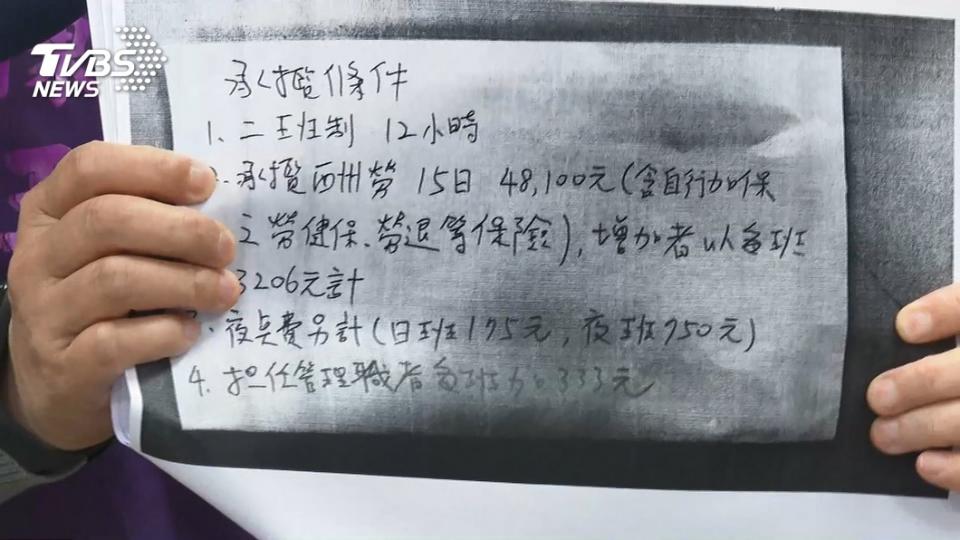 TVBS
NEWS
承攬條件
1. 二班制 12小時
承攬 酬勞 15日 48,100元(含自行加保
之勞健保、勞退等保險), 增加者以每班
3206元計
夜點費另計(日班175元, 夜班750元)
4. 担任管理職者每班加 333元